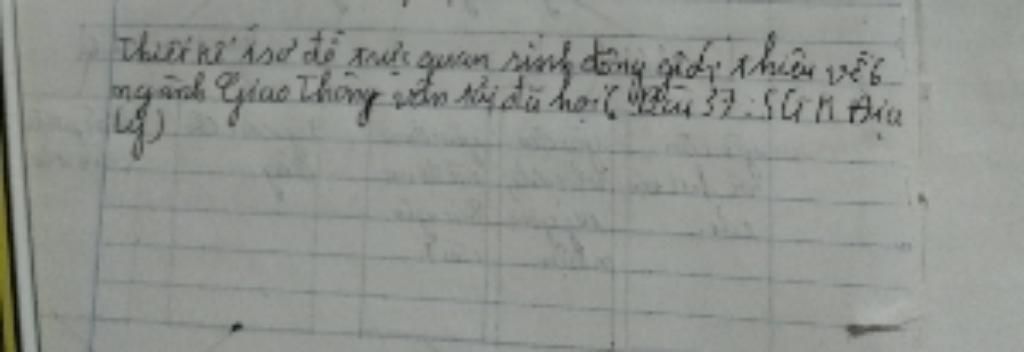 Thiết kế 1 sơ đồ trực quan sinh động giới thiệu về 6
ngành Giao Thông vận tải đã học ( Bài 37: SGK Địa
Lý)